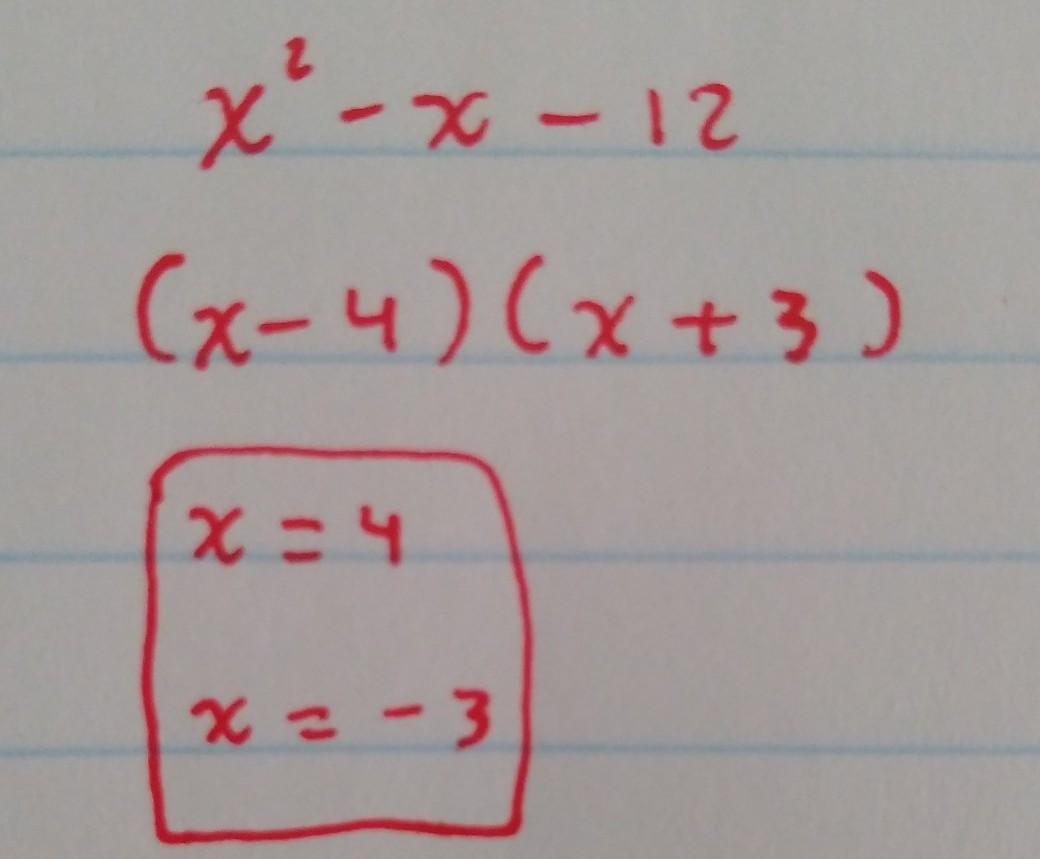 x² - x - 12
(x - 4)(x + 3)
x = 4
x = - 3